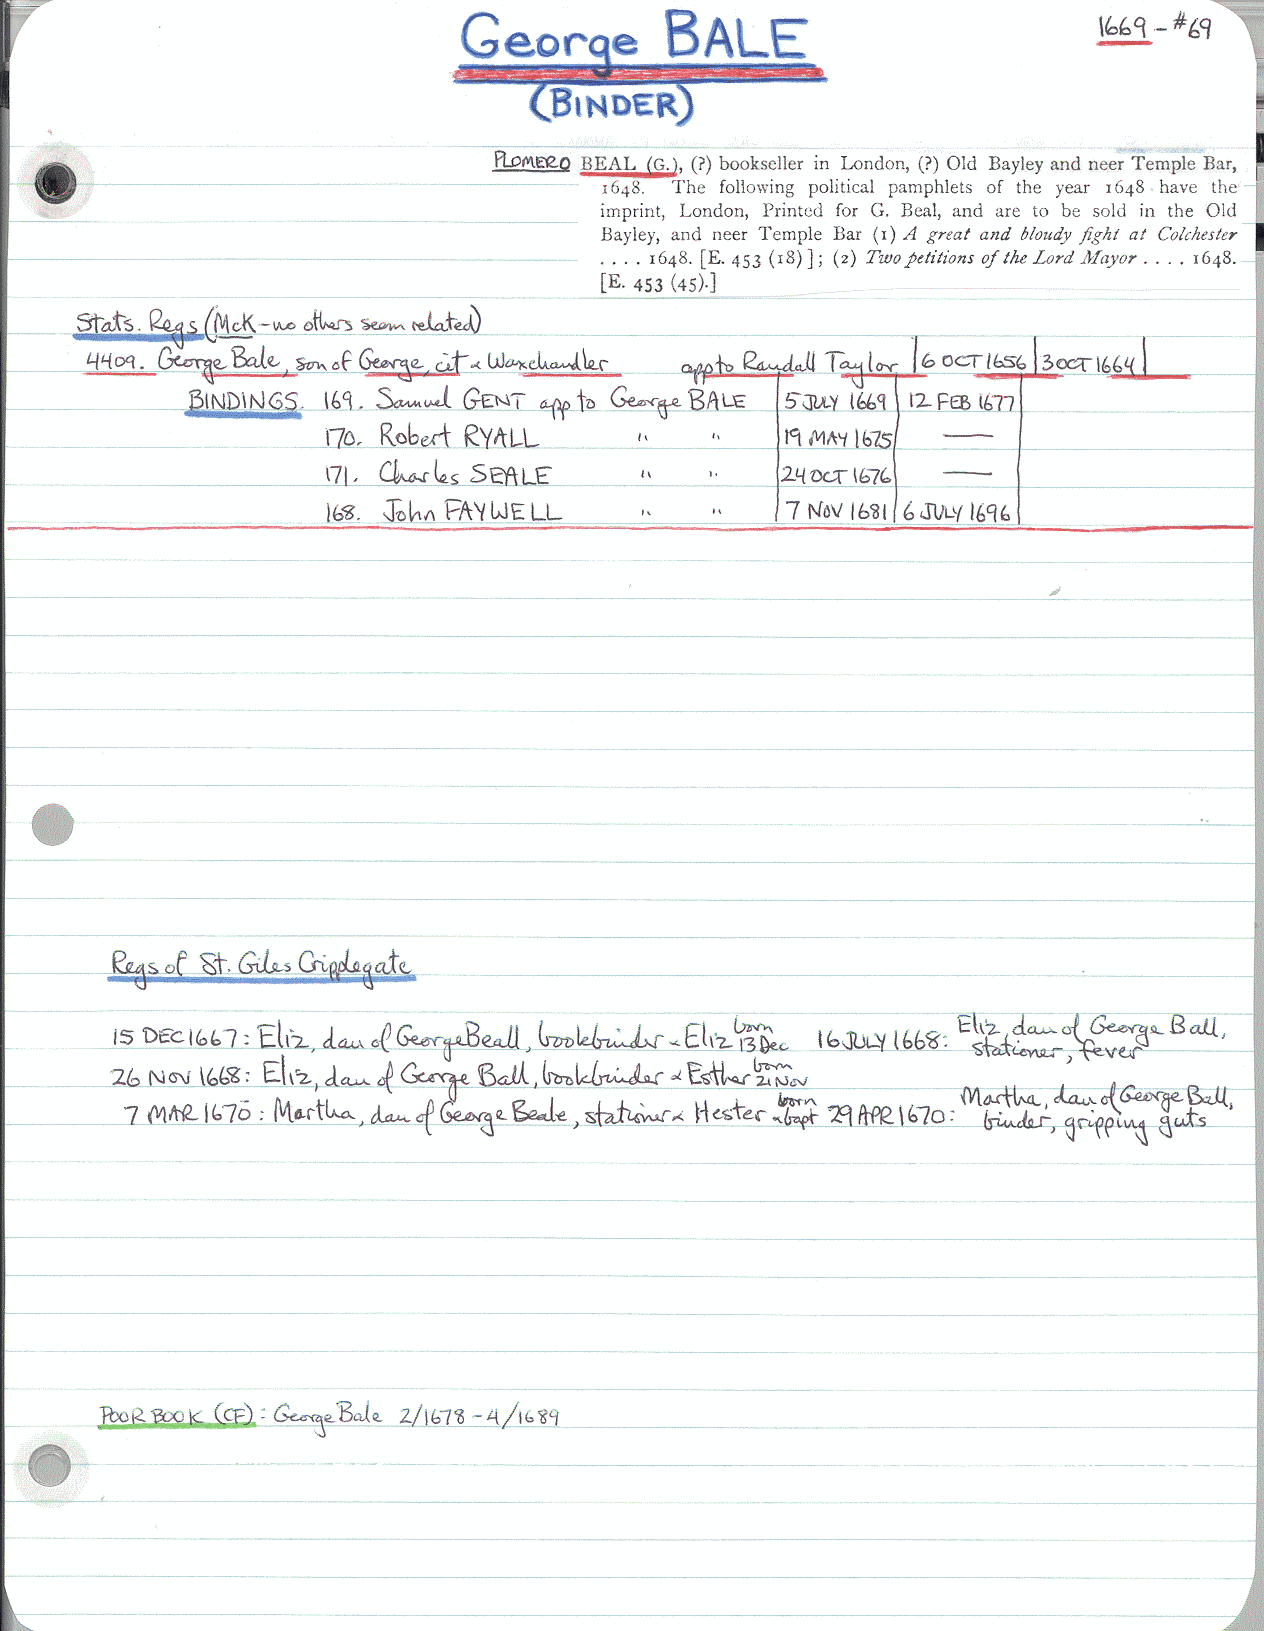 George BALE
1669 - #69
(BINDER)
PLOMER0 BEAL (G.), (?) bookseller in London, (?) Old Bayley and neer Temple Bar,
1648. The following political pamphlets of the year 1648 have the
imprint, London, Printed for G. Beal, and are to be sold in the Old
Bayley, and neer Temple Bar (1) A great and bloudy fight at Colchester
. . . . 1648. [E. 453 (18)]; (2) Two petitions of the Lord Mayor . . . . 1648.
[E. 453 (45).]
Stats. Regs (McK - no others seem related)
4409. George Bale, son of George, cit & Waxchandler app to Randall Taylor | 6 OCT 1656 | 3 OCT 1664 |
BINDINGS. 169. Samuel GENT app to George BALE | 5 JULY 1669 | 12 FEB 1677 |
170. Robert RYALL " " | 19 MAY 1675 | —
171. Charles SEALE " " | 24 OCT 1676 | —
168. John FAYWELL " " | 7 NOV 1681 | 6 JULY 1696 |
Regs of St. Giles Cripplegate
15 DEC 1667: Eliz, dau of George Beall, bookbinder & Eliz born 13 Dec 16 JULY 1668: Eliz, dau of George Ball, stationer, fever
26 NOV 1668: Eliz, dau of George Ball, bookbinder & Esther born 21 Nov
7 MAR 1670: Martha, dau of George Beale, stationer & Hester born & bapt 29 APR 1670: Martha, dau of George Ball, binder, gripping guts
POOR BOOK (CF): George Bale 2/1678 - 4/1689